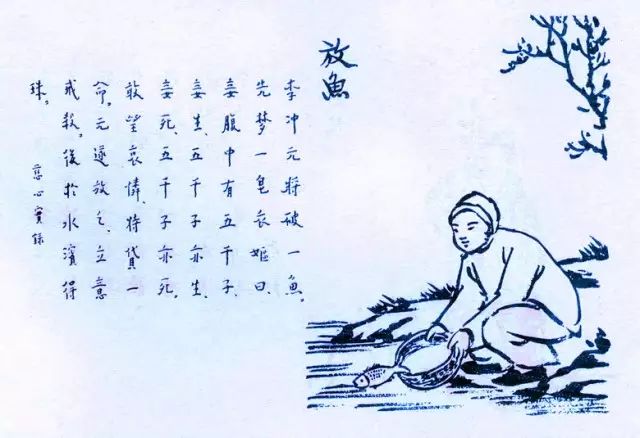 放魚
李沖元將破一魚。
先夢一皂衣嫗曰、
妾腹中有五千子、
妾生、五千子亦生、
妾死、五千子亦死。
敢望哀憐、特貸一
命。元遂放之、立意
戒殺。後於水濱得
珠。
慈心寶錄